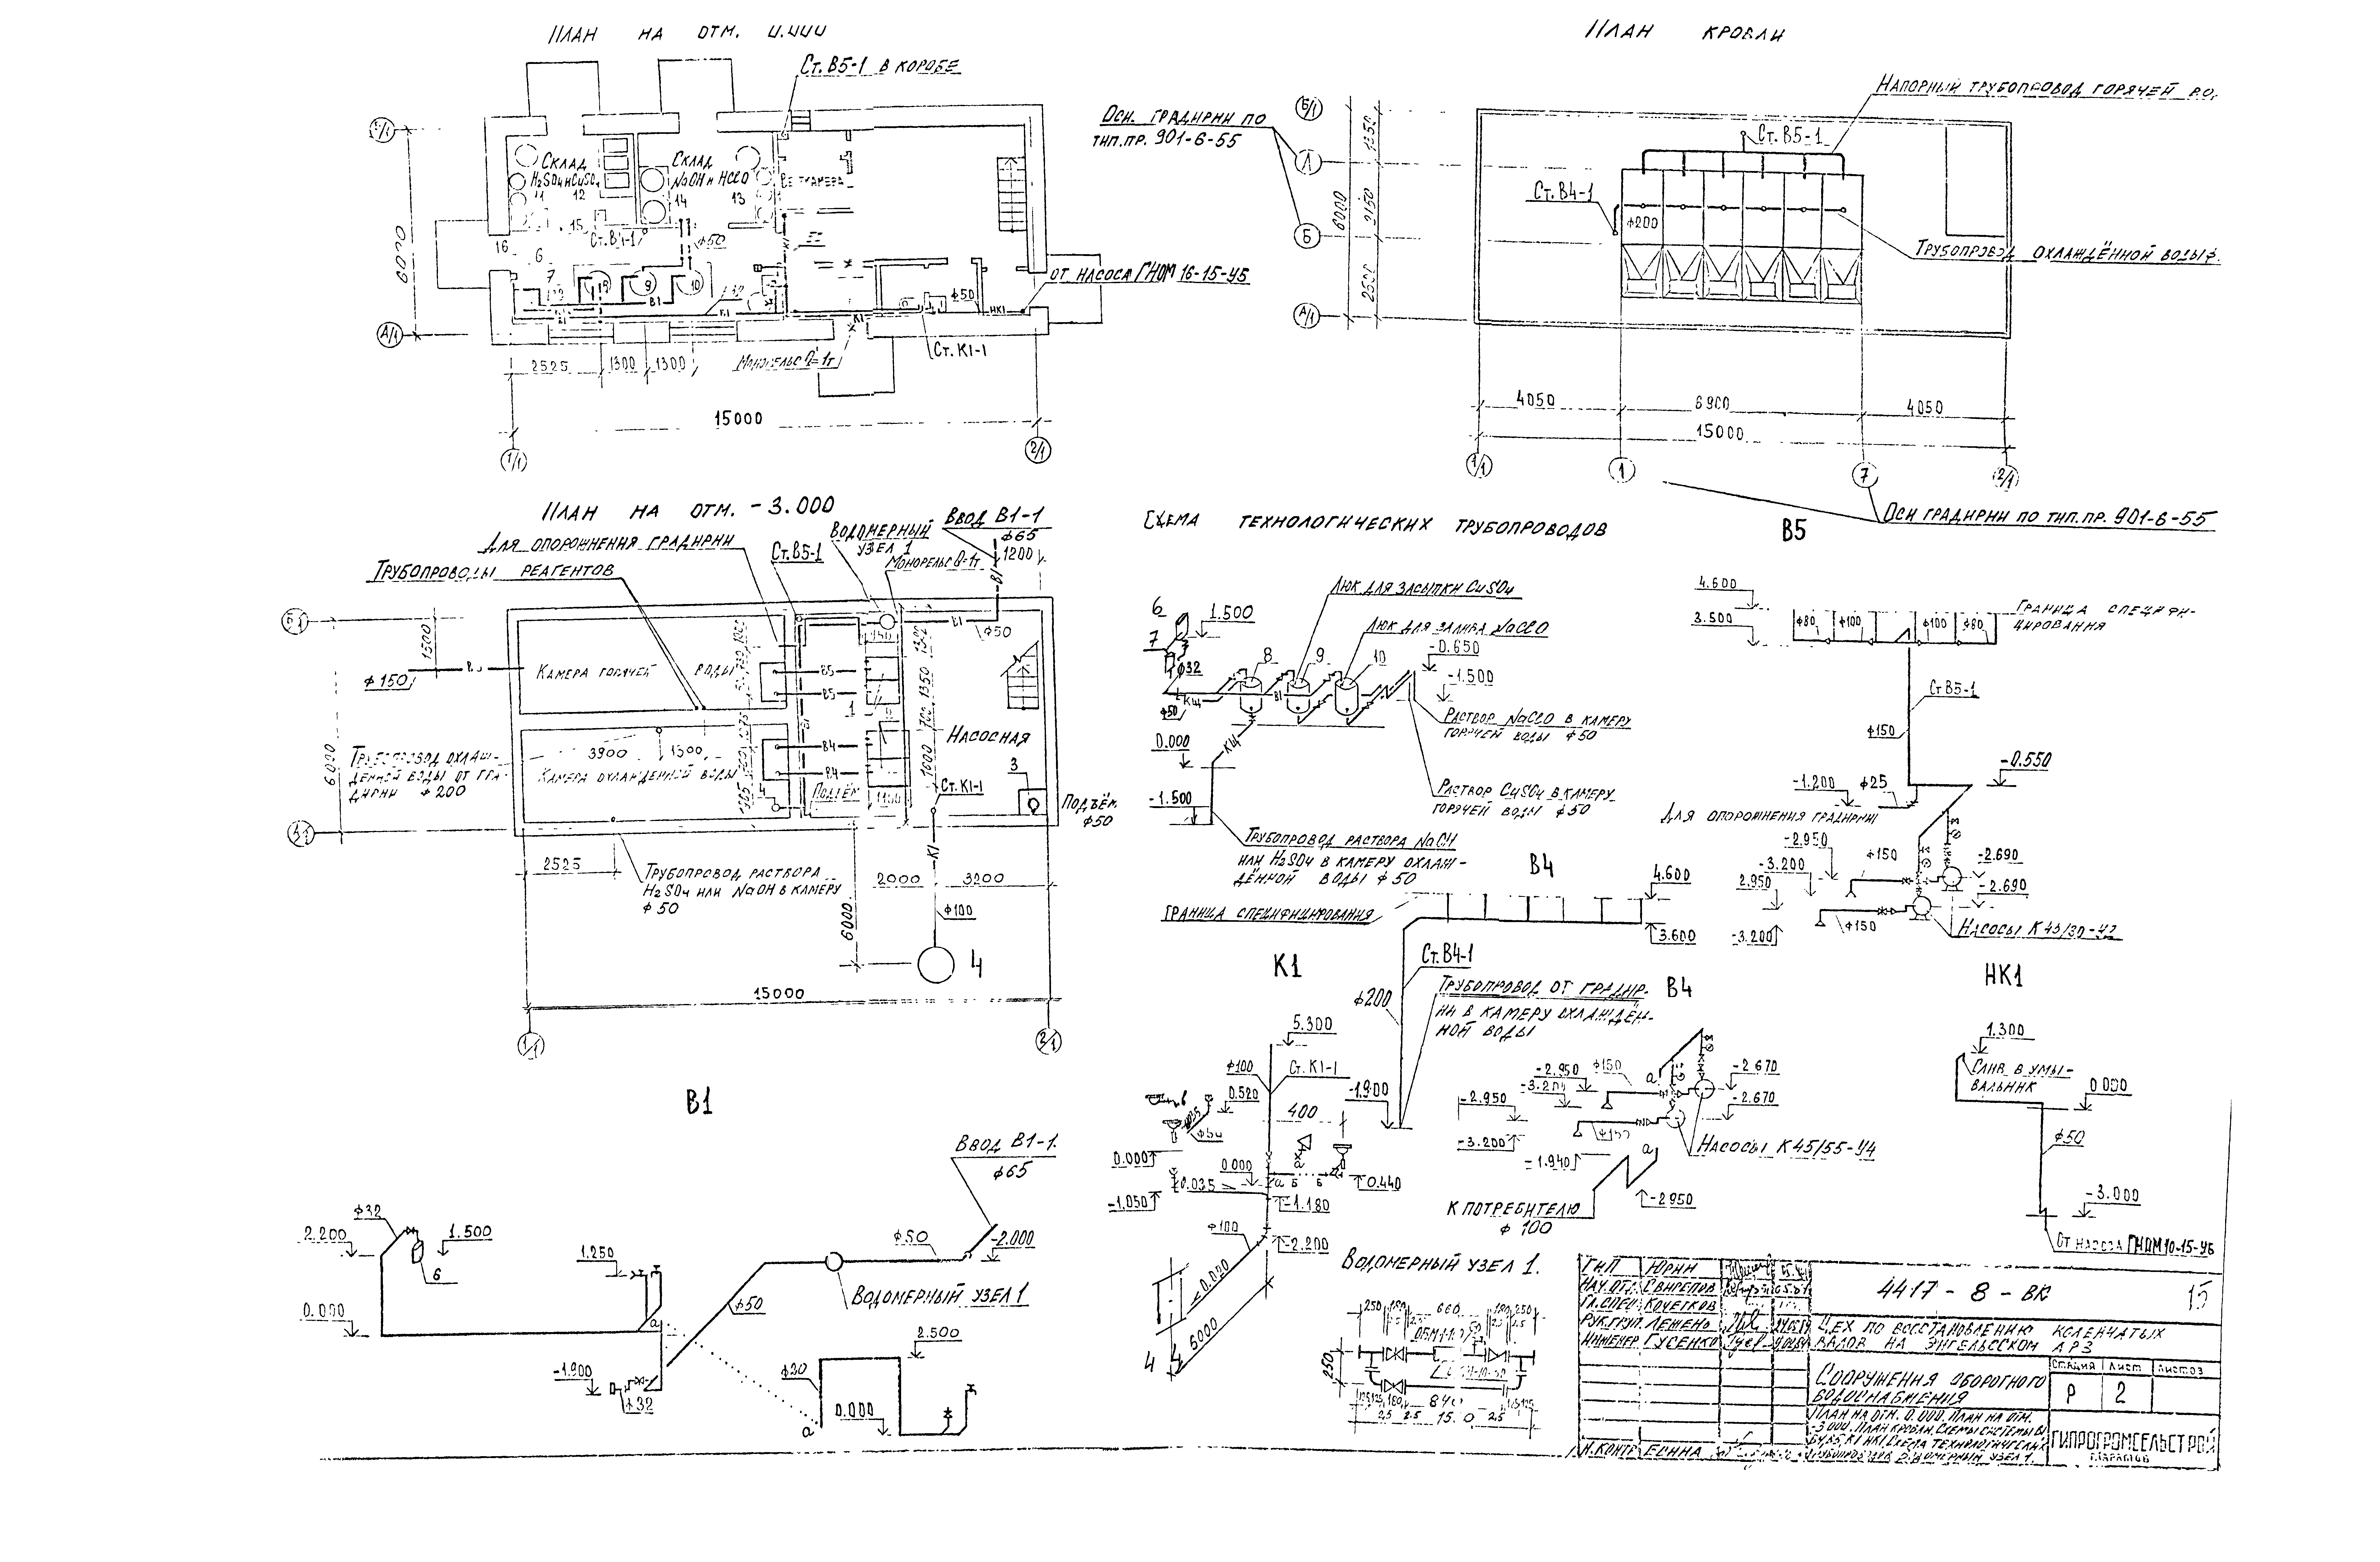 ПЛАН НА ОТМ.
Ст. В5-1 В КОРОБЕ
СКЛАД
H2SO4 И CuSO4
11 12
СКЛАД
NaOH И HCℓO
14 13
15
Ст. В4-1
ф50
16
6
7
8
9
10
В1
К1
К1
ф50
НК1
ОТ НАСОСА ГНОМ 16-15-У6
МОНОРЕЛЬС Q=1т
Ст. К1-1
6000
А/1
2525
1300
1300
15000
1/1
2/1
ПЛАН КРОВЛИ
НАПОРНЫЙ ТРУБОПРОВОД ГОРЯЧЕЙ
ОСИ ГРАДИРНИ ПО
ТИП.ПР. 901-6-55
Б/1
Л
Б
А/1
1350
2150
2500
6000
Ст. В5-1
Ст. В4-1
ф200
ТРУБОПРОВОД ОХЛАЖДЁННОЙ ВОДЫ
4050
6900
4050
15000
1/1
1
7
2/1
ОСИ ГРАДИРНИ ПО ТИП.ПР. 901-6-55
ПЛАН НА ОТМ. -3.000
ДЛЯ ОПОРОЖНЕНИЯ ГРАДИРНИ
ТРУБОПРОВОДЫ РЕАГЕНТОВ
Ст. В5-1
ВОДОМЕРНЫЙ
УЗЕЛ 1
МОНОРЕЛЬС Q=1т
ВВОД В1-1
ф65
1200
В1
В1
ф50
1500
ф150
6000
КАМЕРА ГОРЯЧЕЙ ВОДЫ
В5
В5
1
1350
700
3900
1500
КАМЕРА ОХЛАЖДЕННОЙ ВОДЫ
В4
В4
НАСОСНАЯ
3
Ст. К1-1
ПОДЪЁМ
ф50
ТРУБОПРОВОД ОХЛАЖ-
ДЕННОЙ ВОДЫ ОТ ГРА-
ДИРНИ ф200
2525
ТРУБОПРОВОД РАСТВОРА
H2SO4 ИЛИ NaOH В КАМЕРУ
ф50
К1
2000
3200
6000
ф100
4
15000
1/1
2/1
СХЕМА ТЕХНОЛОГИЧЕСКИХ ТРУБОПРОВОДОВ
6
7
1.500
ф32
КЩ
ф50
8
9
10
В1
ЛЮК ДЛЯ ЗАСЫПКИ CuSO4
ЛЮК ДЛЯ ЗАЛИВА NaCℓO
-0.650
-1.500
РАСТВОР NaCℓO В КАМЕРУ
ГОРЯЧЕЙ ВОДЫ ф50
0.000
КЩ
-1.500
РАСТВОР CuSO4 В КАМЕРУ
ГОРЯЧЕЙ ВОДЫ ф50
ТРУБОПРОВОД РАСТВОРА NaOH
ИЛИ H2SO4 В КАМЕРУ ОХЛАЖ-
ДЁННОЙ ВОДЫ ф50
В5
4.600
3.500
ф80
ф100
ф100
ф80
ГРАНИЦА СПЕЦИФИ-
ЦИРОВАНИЯ
Ст В5-1
ф150
-0.550
-1.200
ф25
ДЛЯ ОПОРОЖНЕНИЯ ГРАДИРНИ
-2.950
-3.200
2.950
-3.200
ф150
ф150
-2.690
-2.690
НАСОСЫ К 45/30-У2
В4
ГРАНИЦА СПЕЦИФИЦИРОВАНИЯ
4.600
3.600
Ст. В4-1
ф200
ТРУБОПРОВОД ОТ ГРАДИР-
НИ В КАМЕРУ ОХЛАЖДЁН-
НОЙ ВОДЫ
-1.900
В4
-2.950
-3.200
-2.950
-3.200
ф150
ф150
а
-2.670
-2.670
НАСОСЫ К 45/55-У4
-1.940
а
-2950
К ПОТРЕБИТЕЛЮ
ф 100
К1
5.300
ф100
Ст. К1-1
0.520
ф50
400
0.000
0.000
0.035
0.440
-1.050
-1.180
ф100
-2.200
0.020
6000
4
НК1
1.300
СЛИВ В УМЫ-
ВАЛЬНИК
0.000
ф50
-3.000
ОТ НАСОСА ГНОМ10-15-У6
В1
ВВОД В1-1
ф65
ф32
2.200
1.500
6
0.000
1.250
ф50
-2.000
ф50
ВОДОМЕРНЫЙ УЗЕЛ 1
а
-1.900
ф32
ф20
2.500
0.000
а
ВОДОМЕРНЫЙ УЗЕЛ 1.
250
180
660
180
250
250
180
840
2.5
2.5
2.5
ГИП ЮРИН
НАЧ.ОТД.
ГЛ.СПЕЦ. КОЧЕТКОВ
РУК.ГРУП.
ИНЖЕНЕР ГУСЕНКО
Н.КОНТР
4417 - 8 - ВК
15
ЦЕХ ПО ВОССТАНОВЛЕНИЮ КОЛЕНЧАТЫХ
ВАЛОВ НА ЭНГЕЛЬССКОМ АРЗ
СООРУЖЕНИЯ ОБОРОТНОГО
ВОДОСНАБЖЕНИЯ
СТАДИЯ ЛИСТ ЛИСТОВ
Р 2
ПЛАН НА ОТМ. 0.000. ПЛАН НА ОТМ.
-3.000. ПЛАН КРОВЛИ. СХЕМЫ СИСТЕМЫ В1
В4, В5, К1 НК1. СХЕМА ТЕХНОЛОГИЧЕСКИХ
ТРУБОПРОВОДОВ. ВОДОМЕРНЫЙ УЗЕЛ 1.
ГИПРОПРОМСЕЛЬСТРОЙ
Г.САРАТОВ